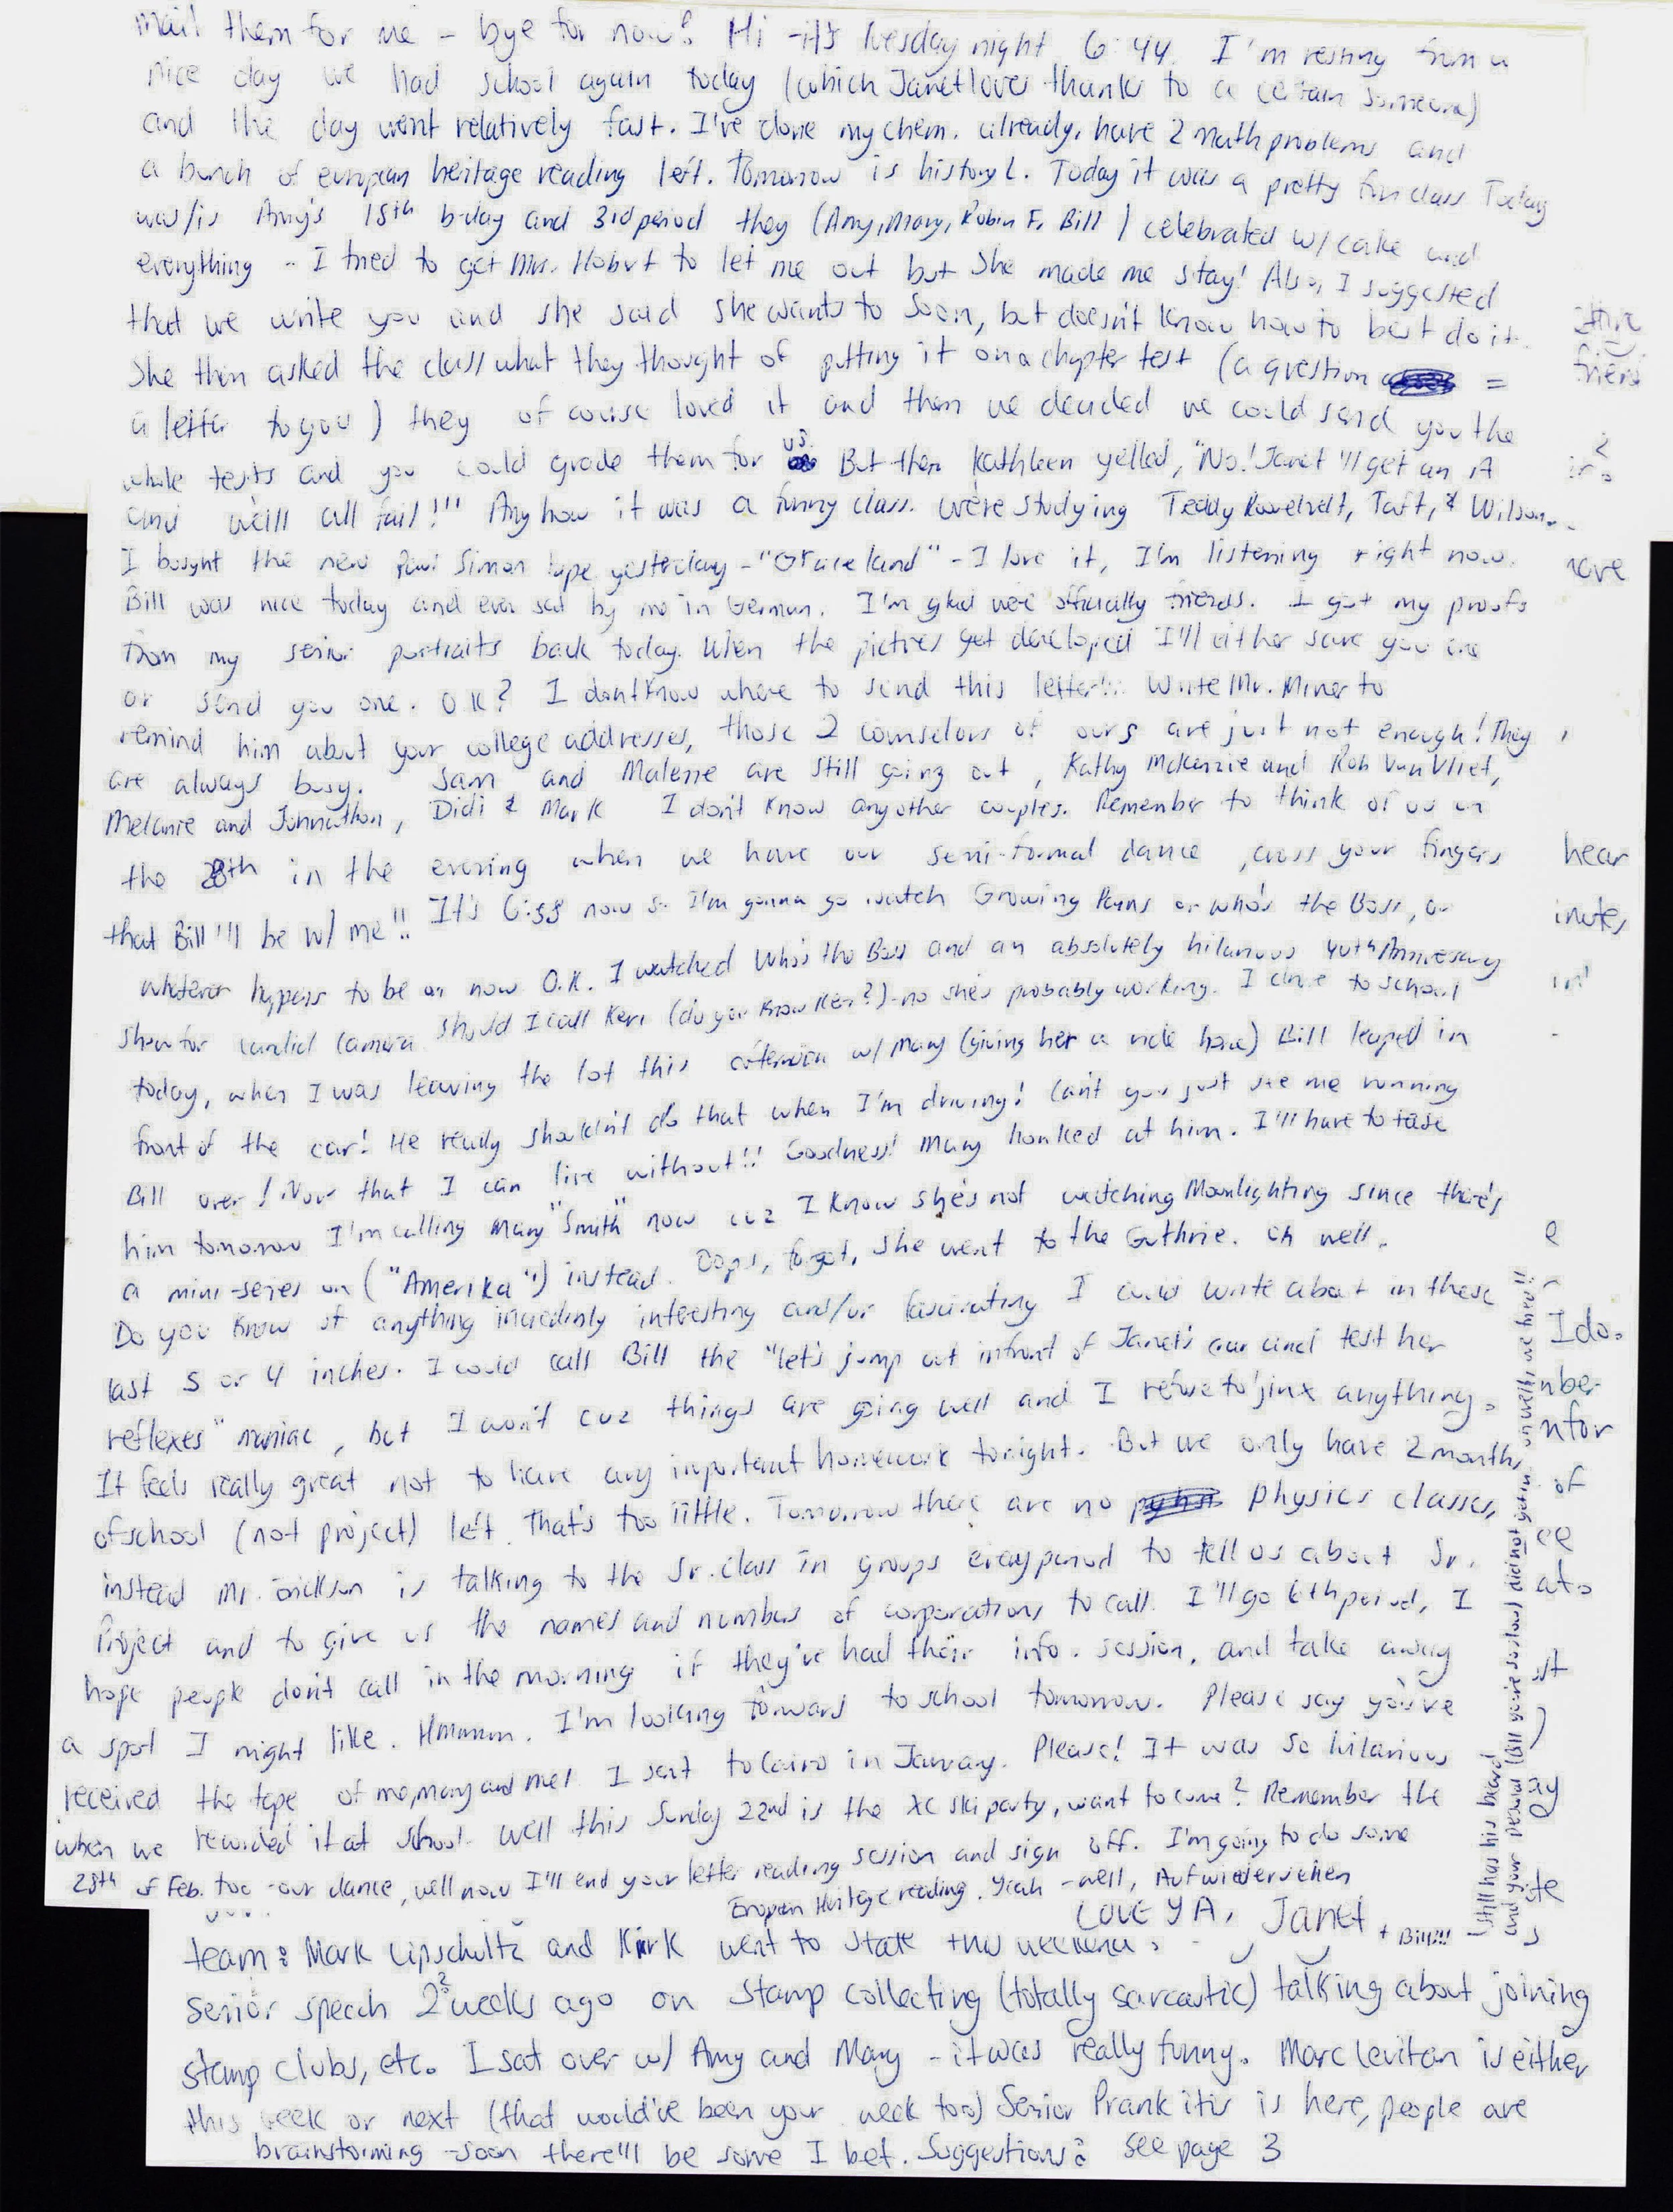 mail them for me - bye for now! Hi - it's Tuesday night 6:44. I'm resting from a
nice day we had school again today (which Janet loves thanks to a certain someone)
and the day went relatively fast. I've done my chem. already, have 2 math problems and
a bunch of european heritage reading left. Tomorrow is history L. Today it was a pretty fun class Today
was/is Amy's 18th b-day and 3rd period they (Amy, Mary, Robin F, Bill) celebrated w/ cake and
everything - I tried to get Mrs. Hobart to let me out but she made me stay! Also, I suggested
that we write you and she said she wants to soon, but doesn't know how to best do it.
She then asked the class what they thought of putting it on a chapter test (a question =
a letter to you) they of course loved it and then we decided we could send you the
whole tests and you could grade them for us. But then Kathleen yelled, "No! Janet'll get an A
and we'll all fail!" Anyhow it was a funny class. We're studying Teddy Roosevelt, Taft, & Wilson.
I bought the new Paul Simon tape yesterday - "Graceland" - I love it, I'm listening right now.
Bill was nice today and even sat by me in German. I'm glad we're officially friends. I got my proofs
from my senior portraits back today. When the pictures get developed I'll either save you one
or send you one. OK? I dont know where to send this letter!! Write Mr. Miner to
remind him about your college addresses, those 2 counselors of ours are just not enough! They
are always busy. Sam and Malene are still going out, Kathy McKenzie and Rob VanVliet,
Melanie and Johnathon, Didi & Mark I don't know any other couples. Remember to think of us on
the 28th in the evening when we have our semi-formal dance, cross your fingers
that Bill'll be w/ me!! It's 6:58 now so I'm gonna go watch Growing Pains or who's the Boss, or
whatever happens to be on now O.K. I watched Who's the Boss and an absolutely hilarious 40th Anniversary
show for candid camera should I call Keri (do you know Keri?) - no she's probably working. I drove to school
today, when I was leaving the lot this afternoon w/ Mary (giving her a ride home) Bill leaped in
front of the car! He really shouldn't do that when I'm driving! Can't you just see me running
Bill over! Now that I can live without!! Goodness! Mary honked at him. I'll have to tease
him tomorrow I'm calling Mary "Smith" now cuz I know she's not watching Moonlighting since there's
a mini-series on ("Amerika") instead. Oops, forgot, she went to the Guthrie. Oh well.
Do you know of anything incredibly interesting and/or fascinating I could write about in these
last 5 or 4 inches. I could call Bill the "let's jump out infront of Janet's car and test her
reflexes" maniac, but I won't cuz things are going well and I refuse to jinx anything.
It feels really great not to have any important homework tonight. But we only have 2 months
of school (not project) left. That's too little. Tomorrow there are no physics classes,
instead Mr. Erickson is talking to the Sr. class in groups every period to tell us about Sr.
Project and to give us the names and numbers of corporations to call. I'll go 6th period, I
hope people don't call in the morning if they've had their info. session, and take away
a spot I might like. Hmmmm. I'm looking forward to school tomorrow. Please say you've
received the tape of me, mary and mel I sent to Cairo in January. Please! It was so hilarious
when we recorded it at school. Well this Sunday 22nd is the XC ski party, want to come? Remember the
28th of Feb. too - our dance, well now I'll end your letter reading session and sign off. I'm going to do some
European Heritage reading. Yeah - well, Aufwiedersehen
Love YA, Janet + Bill!!!
(still has his beard
and your persual (Bill you're so slow) did not get in oh well, we tried!!
hear
inutes
I do.
nber
nfor
of
team: Mark Lipschultz and Kirk went to state this weekend.
senior speech 2? weeks ago on stamp collecting (totally sarcastic) talking about joining
stamp clubs, etc. I sat over w/ Amy and Mary - it was really funny. Marc Levitan is either
this week or next (that would've been your week too) Senior Prankitis is here, people are
brainstorming - soon there'll be some I bet. Suggestions? See page 3